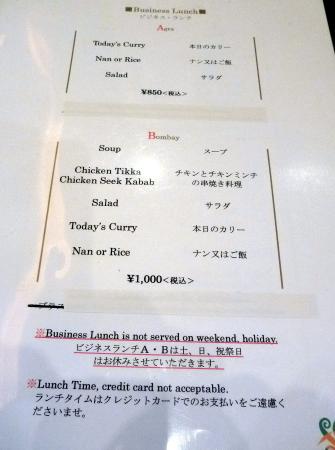 ■Business Lunch■
ビジネス・ランチ
Agra
Today's Curry 本日のカリー
Nan or Rice ナン又はご飯
Salad サラダ
¥850<税込>
Bombay
Soup スープ
Chicken Tikka チキンとチキンミンチ
Chicken Seek Kabab の串焼き料理
Salad サラダ
Today's Curry 本日のカリー
Nan or Rice ナン又はご飯
¥1,000<税込>
※Business Lunch is not served on weekend, holiday.
ビジネスランチA・Bは土、日、祝祭日
はお休みさせていただきます。
※Lunch Time, credit card not acceptable.
ランチタイムはクレジットカードでのお支払いをご遠慮く
ださいませ。